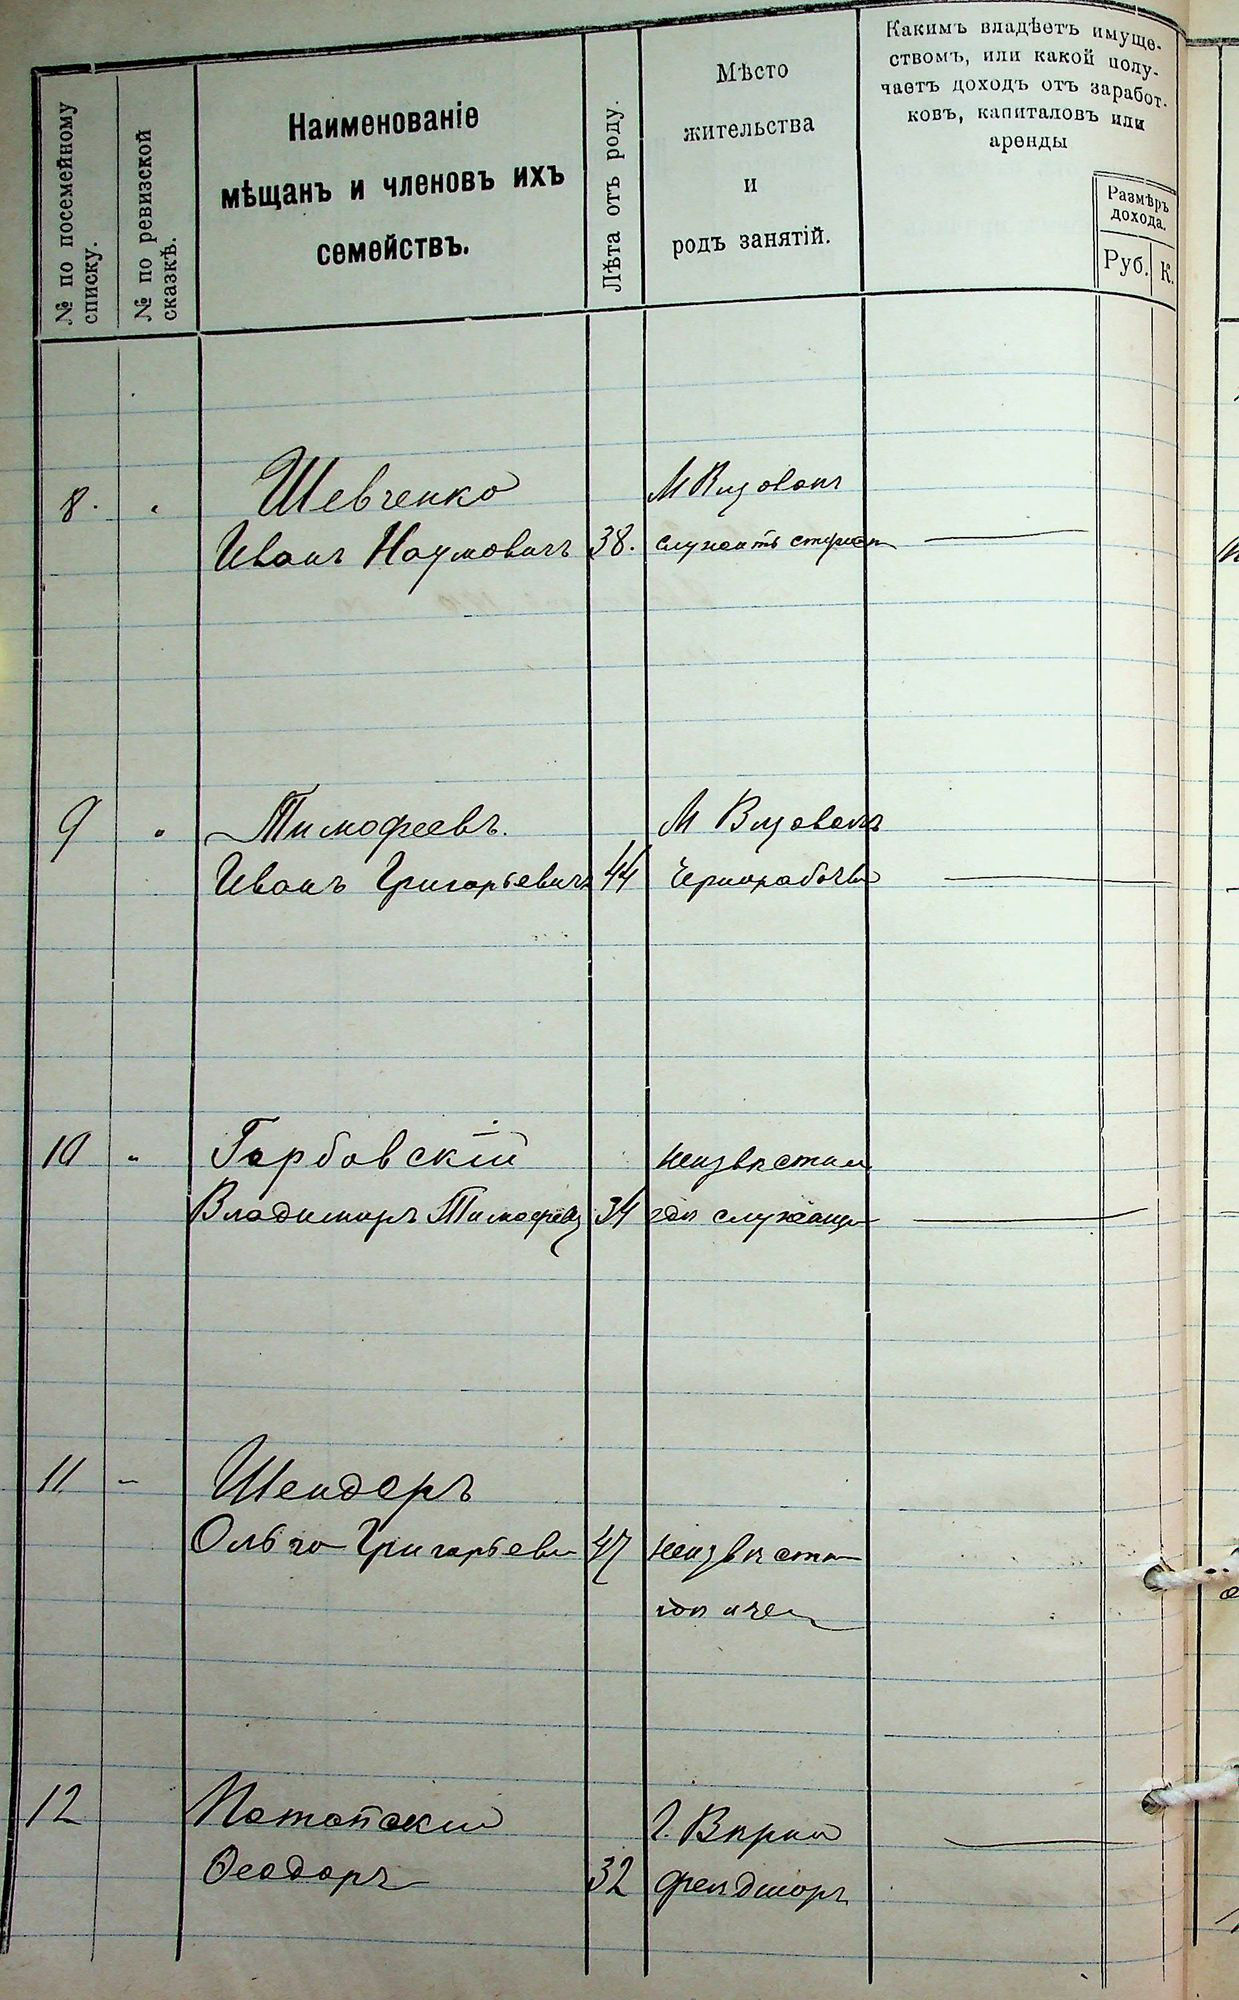 № по посемейному
списку.
№ по ревизской
сказкѣ.
Наименованіе
мѣщанъ и членовъ ихъ
семействъ.
Лѣта отъ роду.
Мѣсто
жительства
и
родъ занятій.
Какимъ владѣетъ имуще-
ствомъ, или какой полу-
чаетъ доходъ отъ заработ-
ковъ, капиталовъ или
аренды
Размѣръ
дохода.
Руб. К.
8. Шевченко М
Иванъ Наумовичъ 38. служитъ
9 Тимофеевъ. М
Иванъ Григорьевичъ 44 Чернорабочій
10 Горбовскій неизвѣстно
Владимиръ 34 гдѣ
11 Шендеръ
Ольга 47 неизвѣстно
гдѣ
12
Феодоръ 32 фельдшеръ